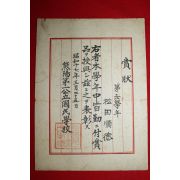 賞狀
第六學年
松田順德
右者本學年中皆勤ニ付賞
品ヲ授與シ茲ニ之ヲ表彰ス
昭和十七年三月二十五日
第一公立國民學校